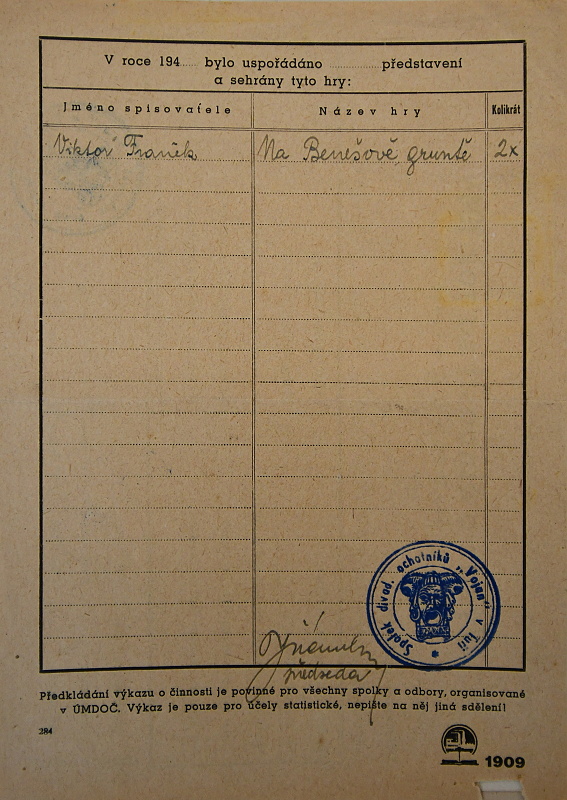 V roce 194...... bylo uspořádáno .............. představení
a sehrány tyto hry:
Jméno spisovatele Název hry Kolikrát
Viktor Franěk Na Benešově gruntě 2x
Spolek divad. ochotníků „Vojan“ v Tuři
předseda
Předkládání výkazu o činnosti je povinné pro všechny spolky a odbory, organisované
v ÚMDOČ. Výkaz je pouze pro účely statistické, nepište na něj jiná sdělení!
284
1909